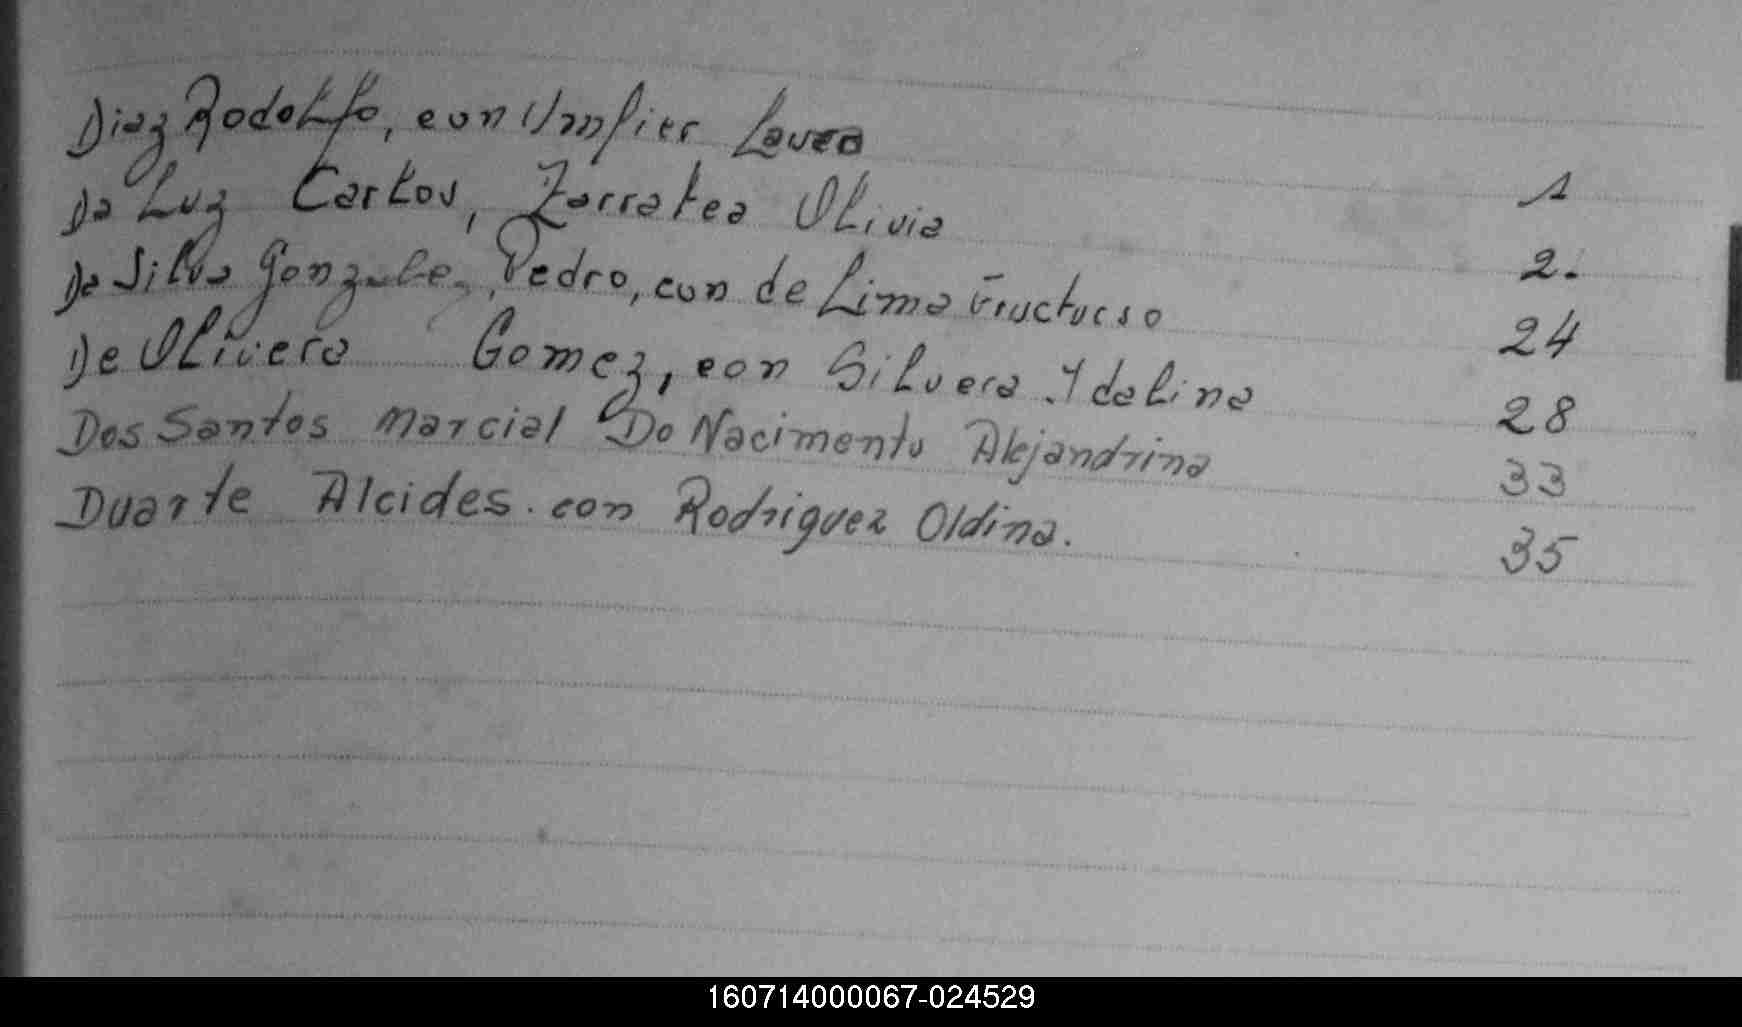 Diaz Rodolfo, con Umpier Laura 1
Da Luz Carlos, Zarratea Olivia 2.
Da Silva Gonzalez, Pedro, con de Lima Fructuoso 24
De Olivera Gomez, con Silvera Ydalina 28
Dos Santos Marcial Do Nacimento Alejandrina 33
Duarte Alcides. con Rodriguez Oldina. 35
160714000067-024529